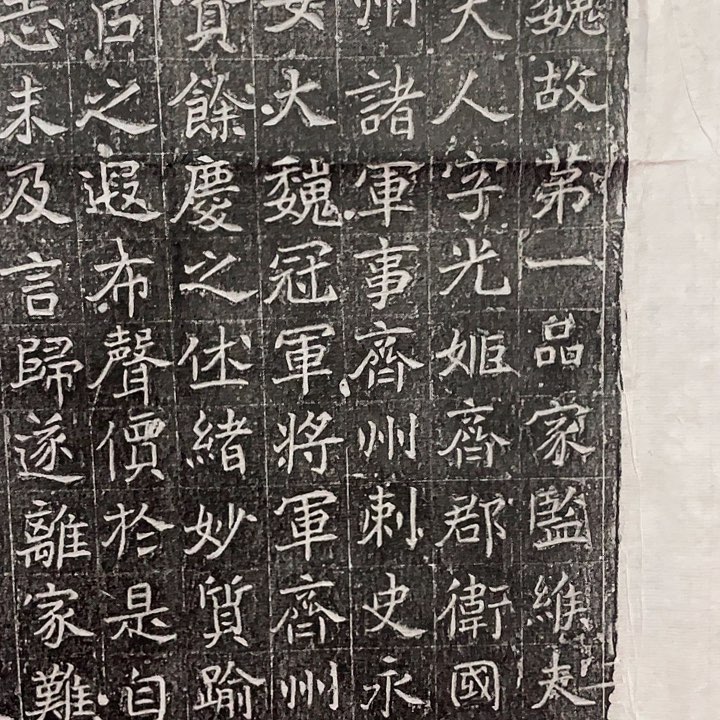 魏故第一品家監緱夫
夫人字光姬齊郡衛國
州諸軍事齊州刺史永
女大魏冠軍將軍齊州
資餘慶之休緒妙質踰
后之遐布聲價於是自
志未及言歸遂離家難